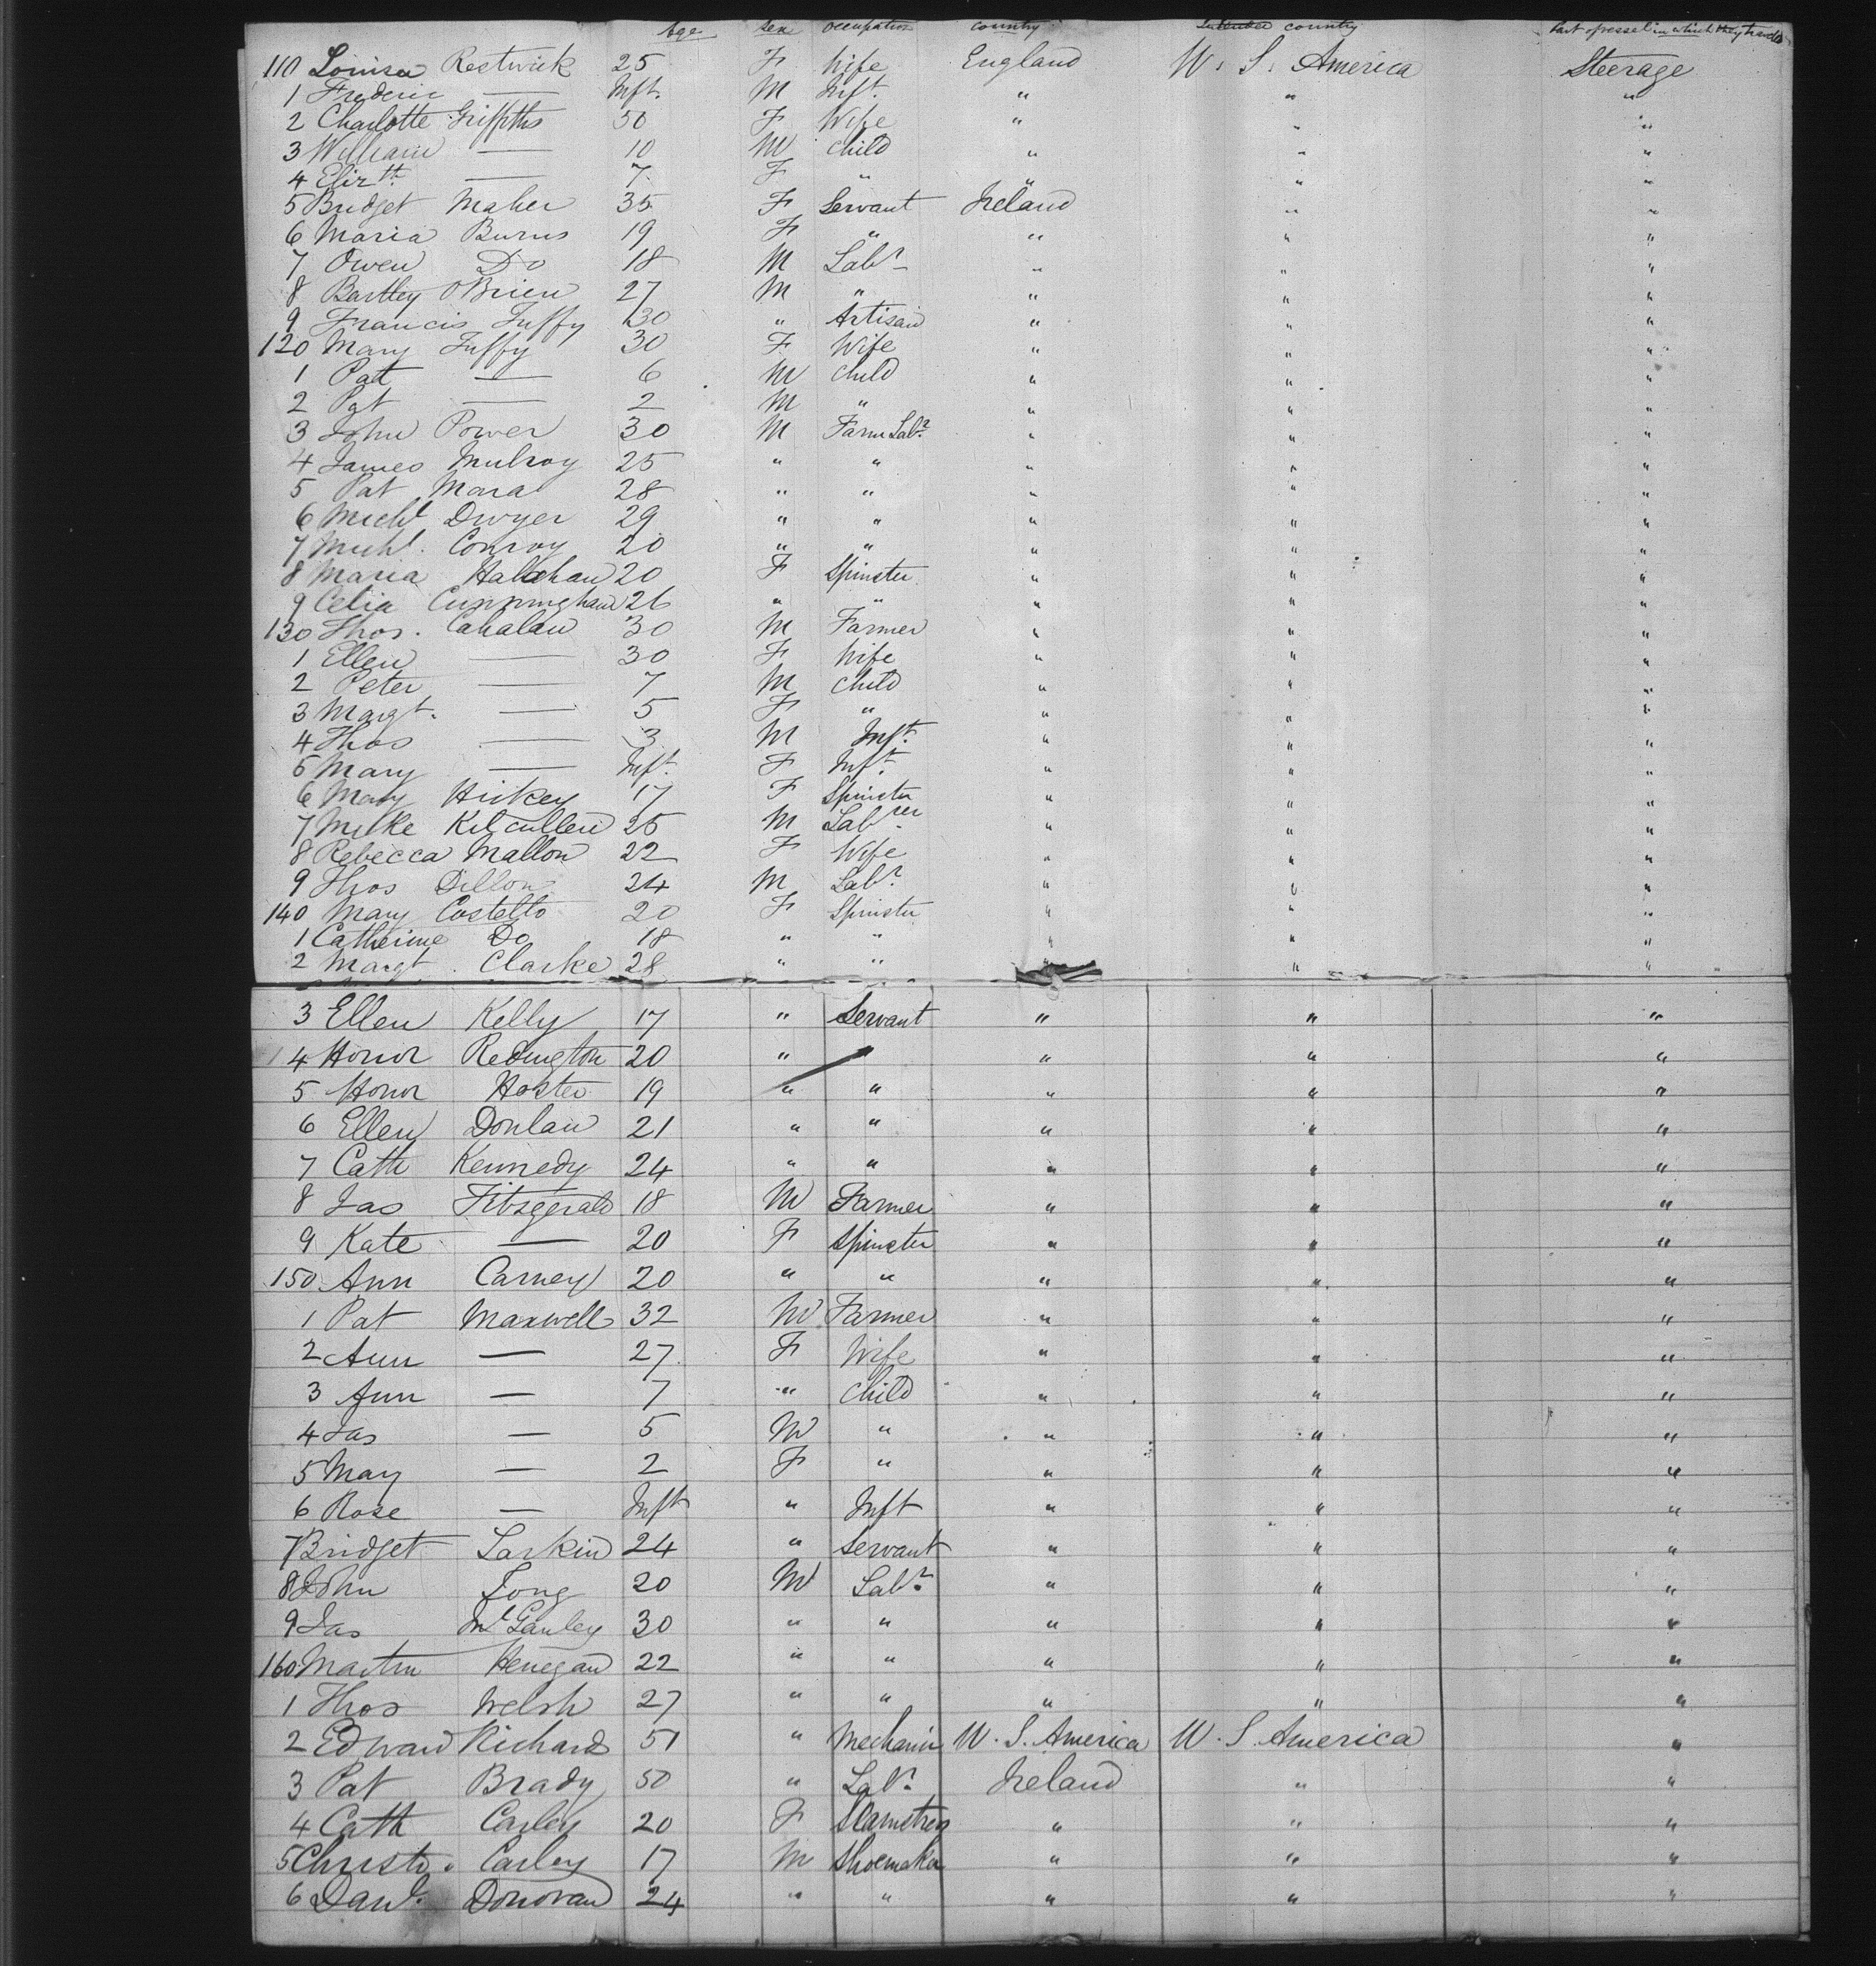 Age Sex Occupation Country Intended country Part of vessel in which they travel
110 Louisa Restwick 25 F Wife England U. S. America Steerage
1 Frederic — Inft. M Inft. " " "
2 Charlotte Griffiths 50 F Wife " " "
3 William — 10 M Child " " "
4 Elizth — 7 F " " " "
5 Bridget Maher 35 F Servant Ireland " "
6 Maria Burns 19 F " " " "
7 Owen Do 18 M Labr " " "
8 Bartley OBrien 27 M " " " "
9 Francis Tuffy 30 " Artisan " " "
120 Mary Tuffy 30 F Wife " " "
1 Pat — 6 M Child " " "
2 Pat — 2 M " " " "
3 John Power 30 M Farm Labr " " "
4 James Mulroy 25 " " " " "
5 Pat Mara 28 " " " " "
6 Michl Dwyer 29 " " " " "
7 Michl. Conroy 20 " " " " "
8 Maria Halahan 20 F Spinster " " "
9 Celia Cunningham 26 " " " " "
130 Thos. Cahalan 30 M Farmer " " "
1 Ellen — 30 F Wife " " "
2 Peter — 7 M Child " " "
3 Margt. — 5 F " " " "
4 Thos — 3 M Inft. " " "
5 Mary — Inft. F Inft. " " "
6 Mary Hickey 17 F Spinster " " "
7 Mike Kilcullen 25 M Labrer " " "
8 Rebecca Mallon 22 F Wife " " "
9 Thos Dillon 24 M Labr. " " "
140 Mary Costello 20 F Spinster " " "
1 Catherine Do 18 " " " " "
2 Margt. Clarke 28 " " " " "
3 Ellen Kelly 17 " Servant " " "
4 Honor Redington 20 " " " " "
5 Honor — 19 " " " " "
6 Ellen Donlan 21 " " " " "
7 Cath Kennedy 24 " " " " "
8 Jas Fitzgerald 18 M Farmer " " "
9 Kate — 20 F Spinster " " "
150 Ann Carney 20 " " " " "
1 Pat Maxwell 32 M Farmer " " "
2 Ann — 27 F Wife " " "
3 Ann — 7 " Child " " "
4 Jas — 5 M " " " "
5 May — 2 F " " " "
6 Rose — Inft " Inft " " "
7 Bridget Larkin 24 " Servant " " "
8 John Long 20 M Labr. " " "
9 Jas McGanley 30 " " " " "
160 Martin Henegan 22 " " " " "
1 Thos Welsh 27 " " " " "
2 Edward Richards 51 " Mechanic U. S. America U. S. America "
3 Pat Brady 50 " Labr. Ireland " "
4 Cath Carley 20 F Seamstress " " "
5 Christo. Carley 17 M Shoemaker " " "
6 Danl. Donovan 24 " " " " "